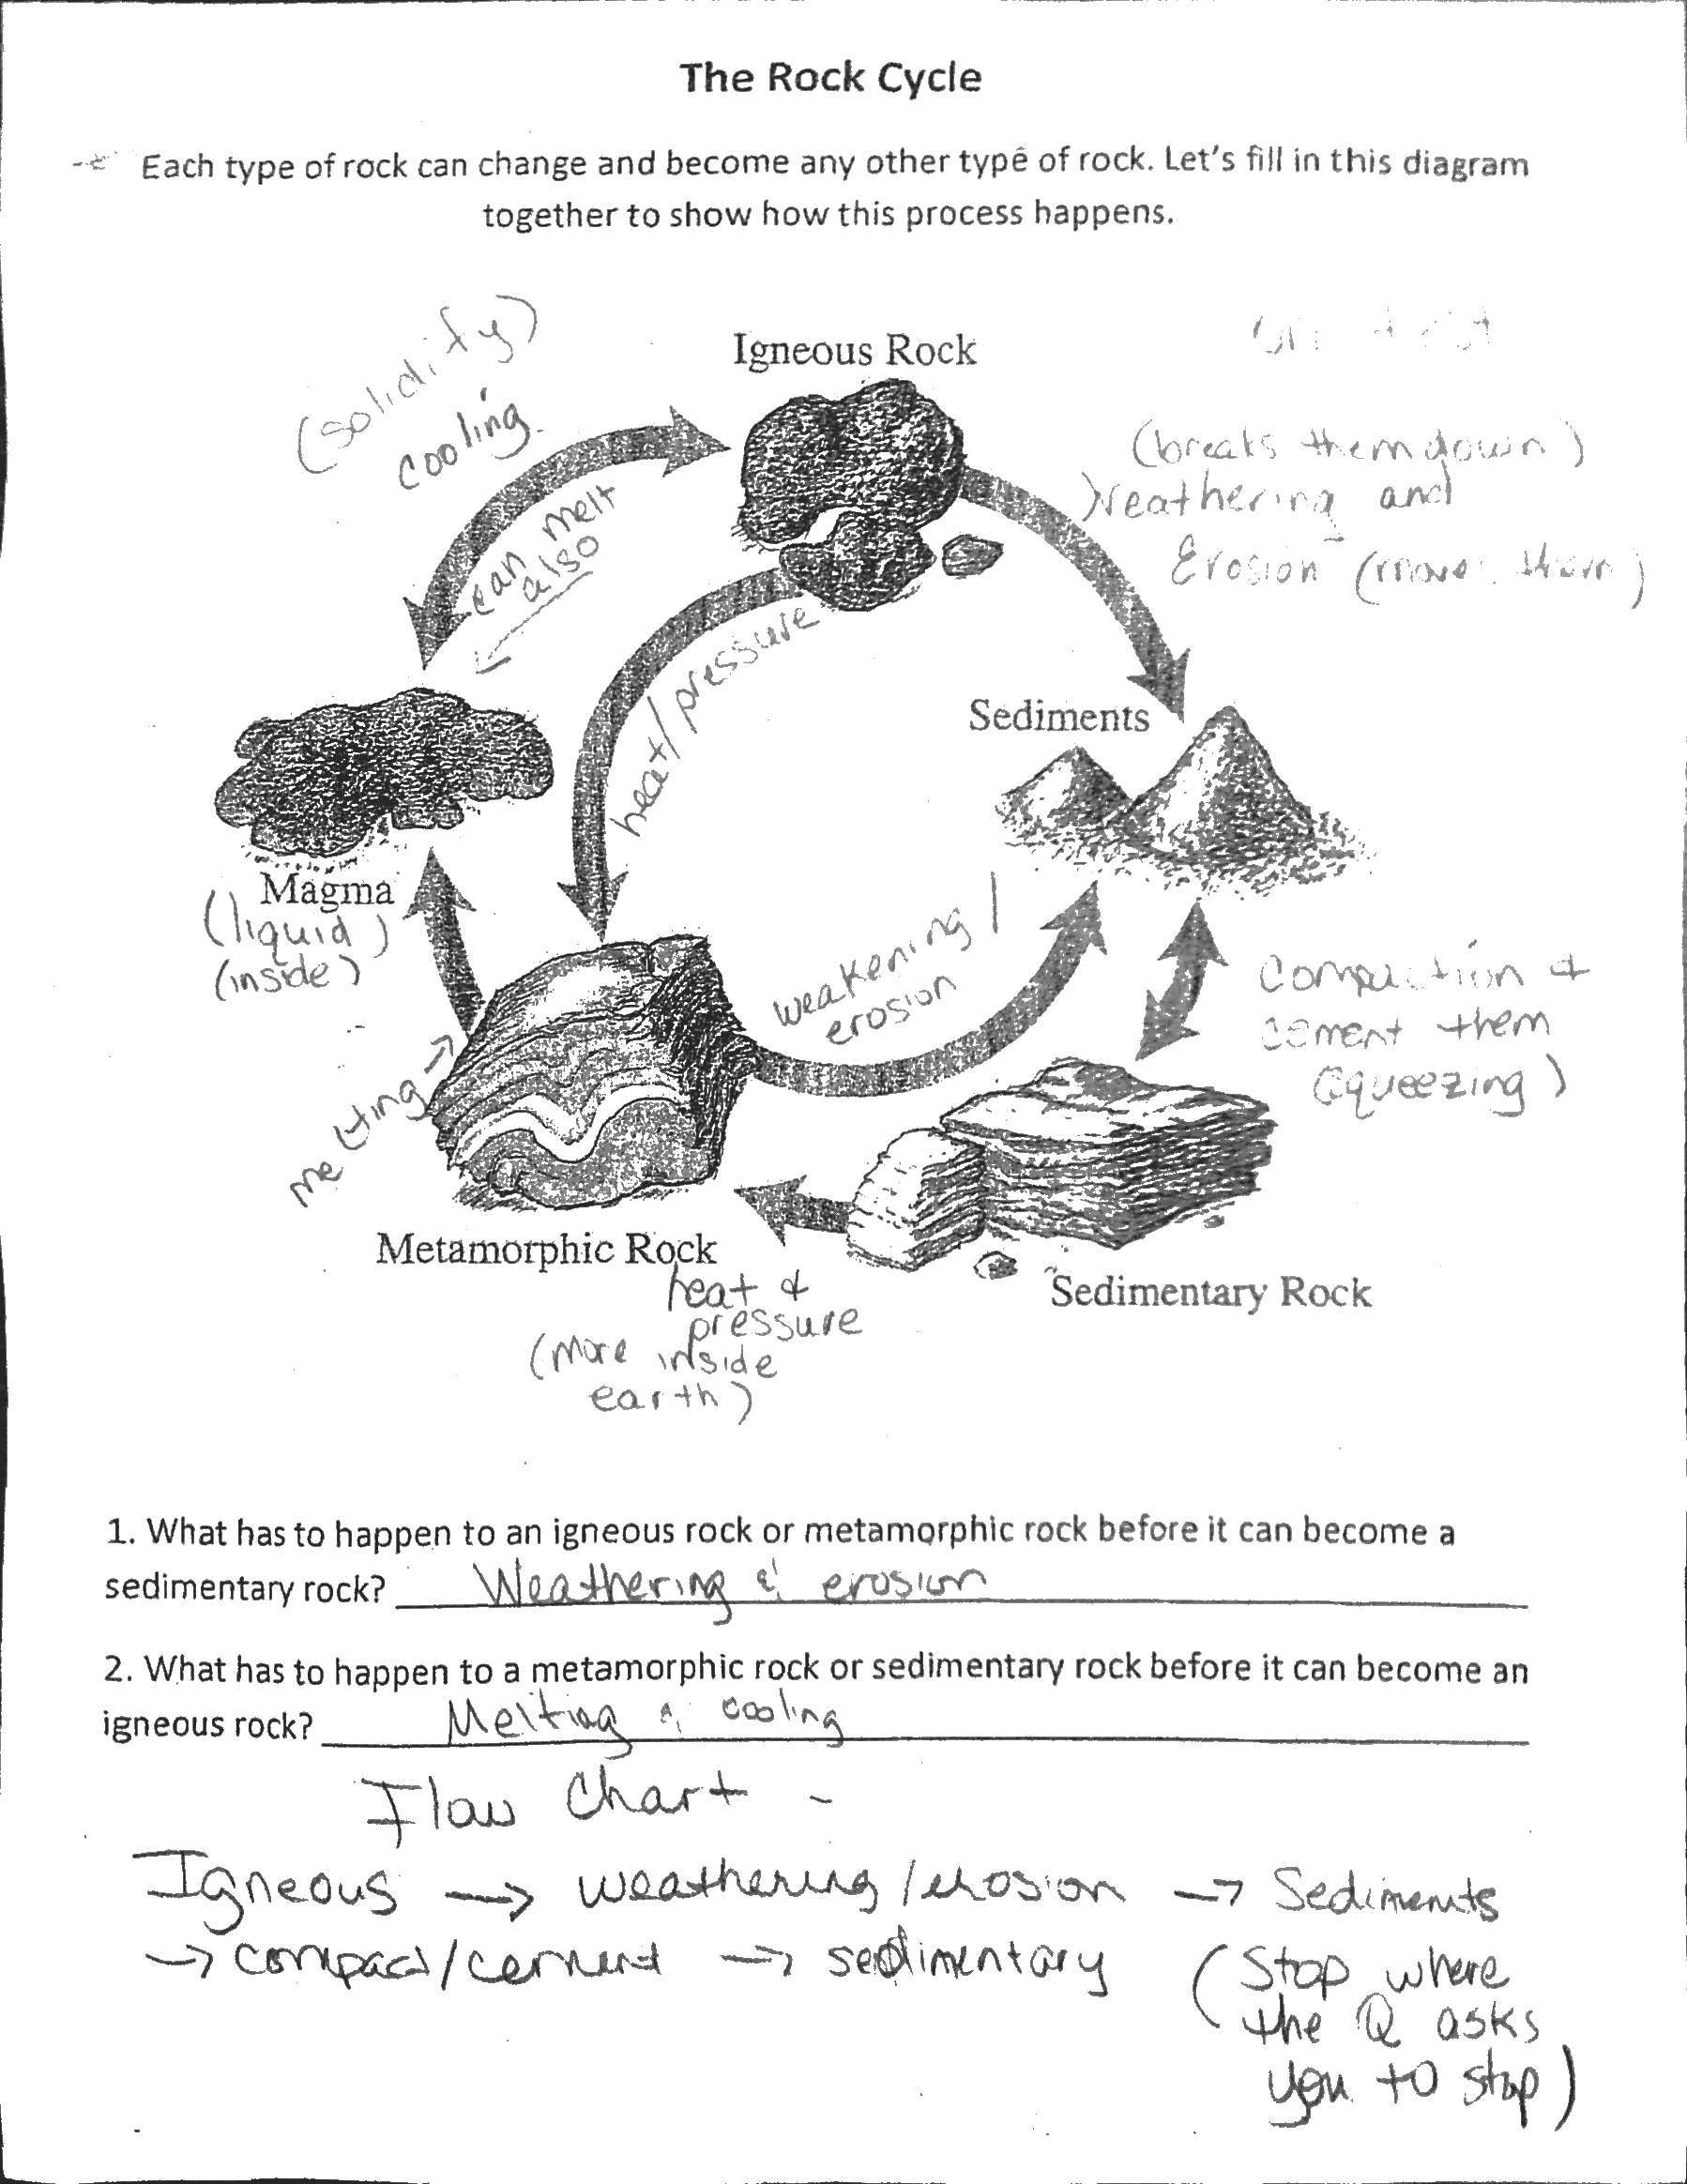 The Rock Cycle
Each type of rock can change and become any other type of rock. Let's fill in this diagram
together to show how this process happens.
(solidify)
cooling
can melt
also
Igneous Rock
(breaks them down)
Weathering and
Erosion (moves them)
heat/pressure
Sediments
Magma
(liquid)
(inside)
weakening/
erosion
Compaction &
cement them
(squeezing)
melting →
Metamorphic Rock
heat &
pressure
(more inside
earth)
Sedimentary Rock
1. What has to happen to an igneous rock or metamorphic rock before it can become a
sedimentary rock? Weathering & erosion
2. What has to happen to a metamorphic rock or sedimentary rock before it can become an
igneous rock? Melting & cooling
Flow Chart -
Igneous → weathering/erosion → Sediments
→ compact/cement → sedimentary (Stop where
the Q asks
you to stop)